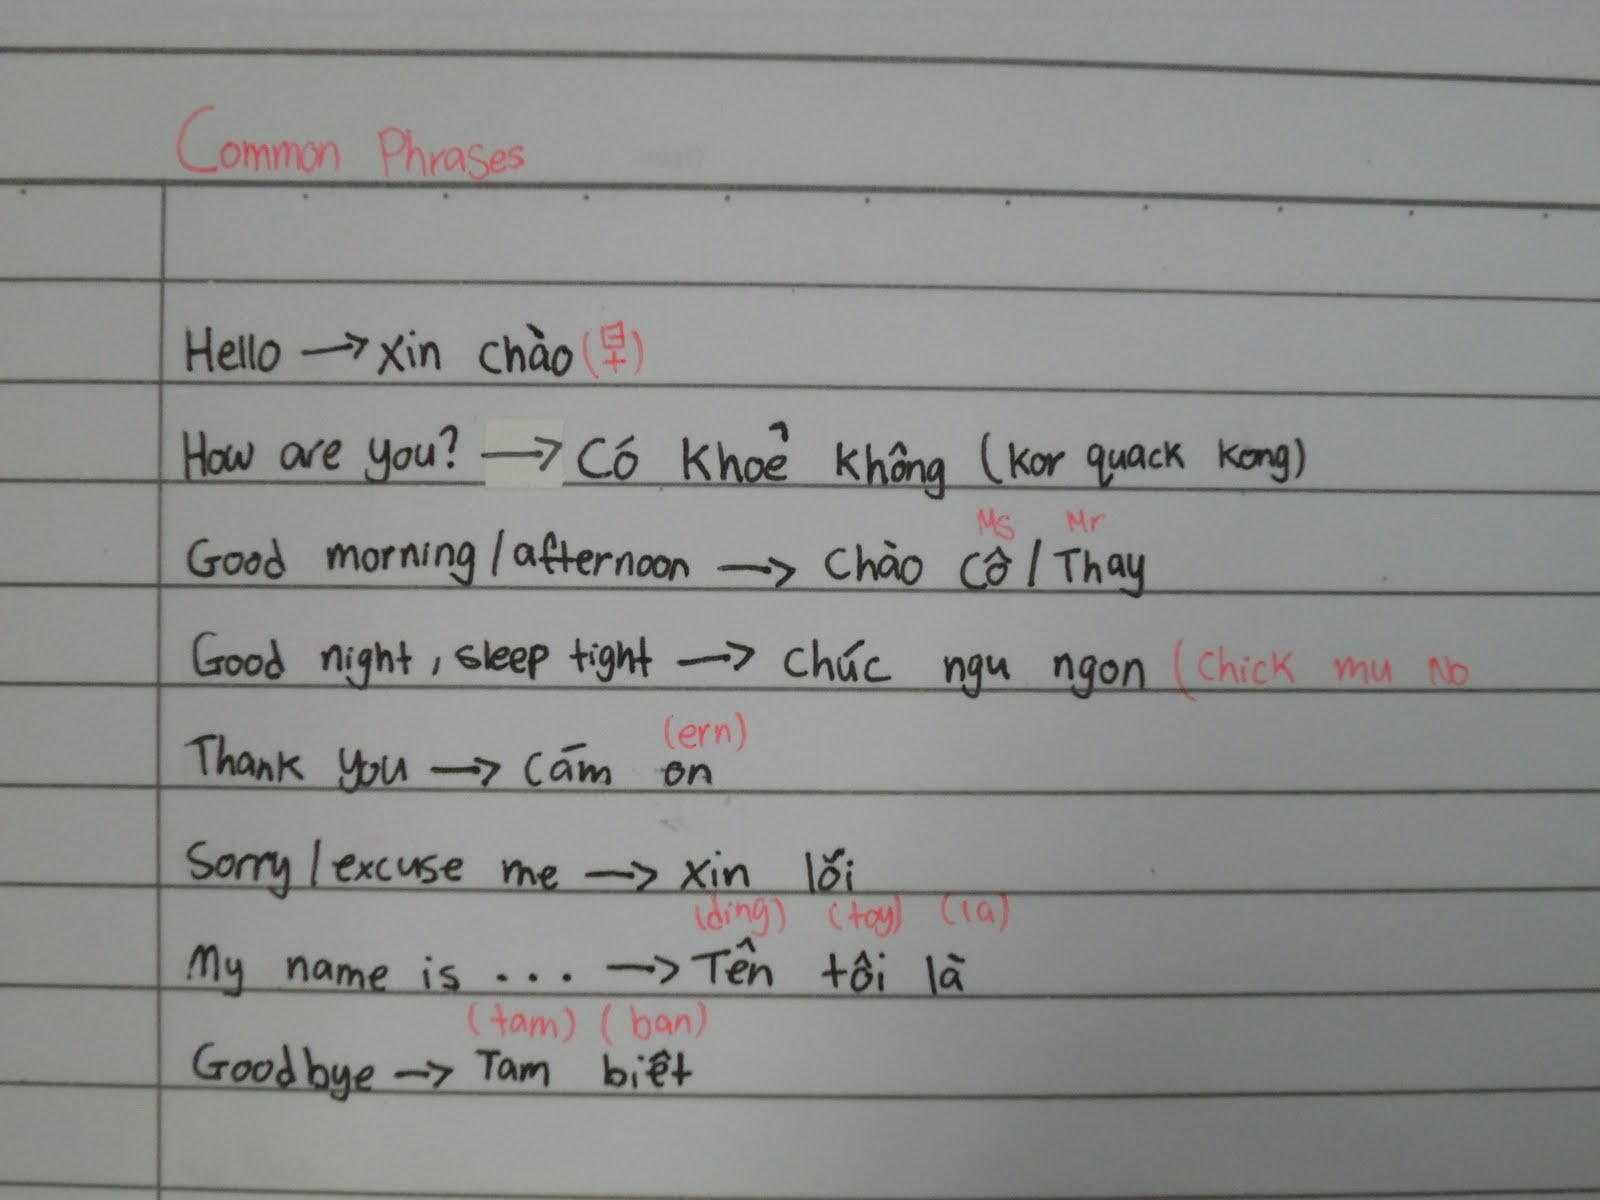 Common Phrases
Hello → xin chào (早)
How are you? → Có khoẻ không (kor quack kong)
Ms Mr
Good morning / afternoon → Chào Cô / Thay
Good night, sleep tight → Chúc ngu ngon (Chick mu No
(ern)
Thank you → Cām on
Sorry / excuse me → xin lỗi
(ding) (toy) (la)
My name is ... → Tên tôi là
(tam) (ban)
Goodbye → Tam biêt